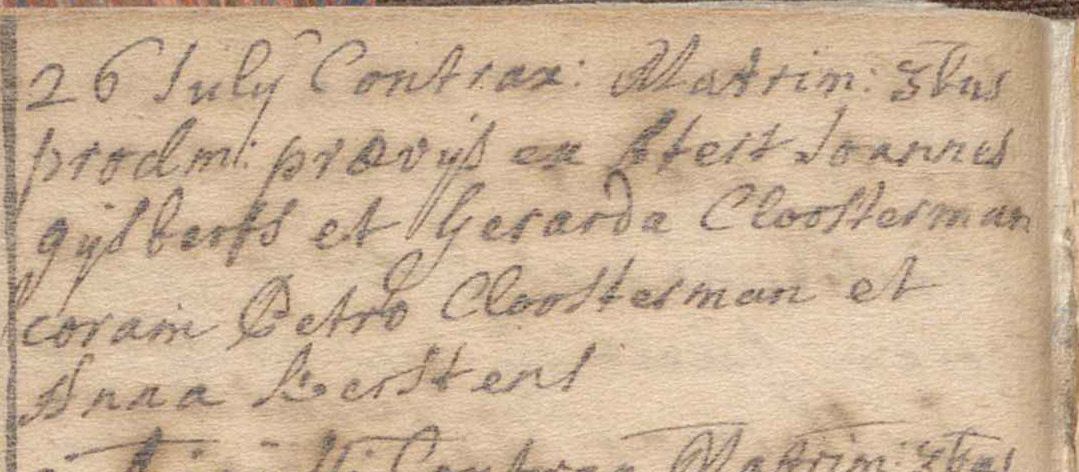 26 July Contrax: Matrim: 3bus
prodm: prævijs ex Stert Joannes
gijsberts et Gerarda Cloosterman
coram Petro Cloosterman et
Anna Kerstens
Contrax Matrim: 3bus